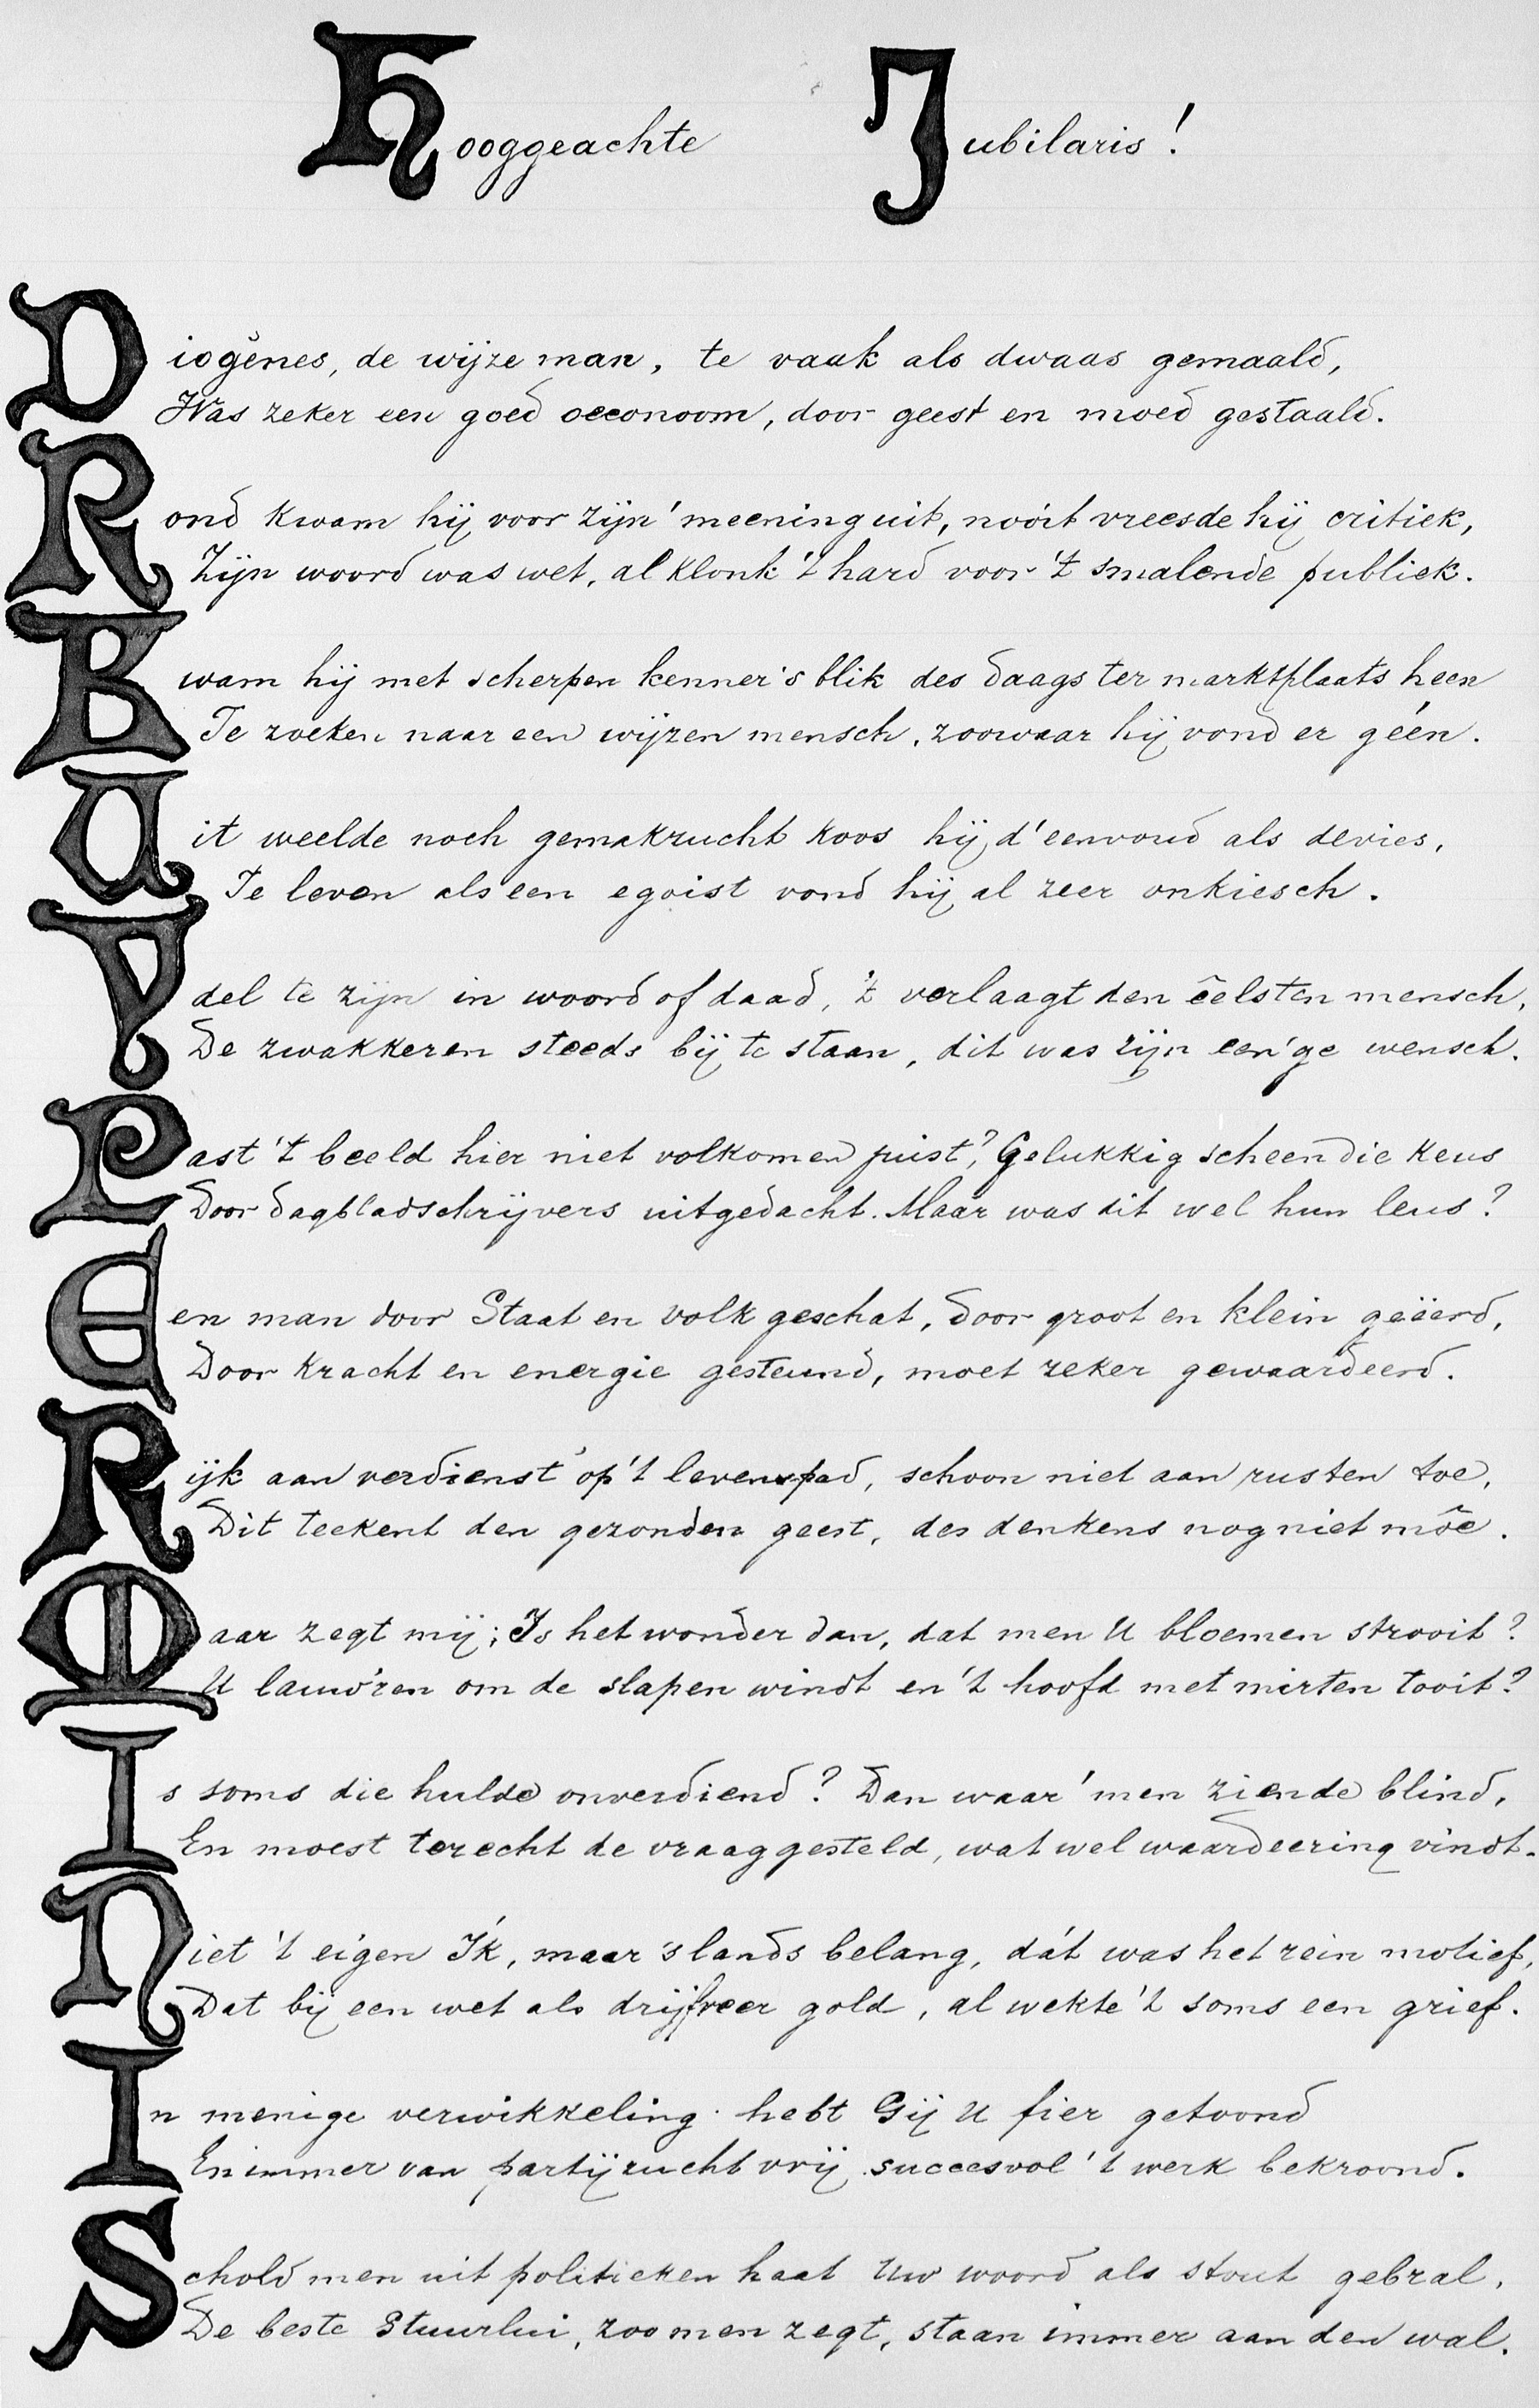 Hooggeachte Jubilaris!
Diogènes, de wijze man, te vaak als dwaas gemaald,
Was zeker een goed oeconoom, door geest en moed gestaald.
Rond kwam hij voor zijn' meening uit, nóóit vreesde hij critiek,
Zijn woord was wet, al klonk 't hard voor 't smalende publiek.
Kwam hij met scherpen kenner's blik des daags ter marktplaats heen
Te zoeken naar een wijzen mensch, zoowaar hij vond er géén.
Uit weelde noch gemakzucht koos hij d'eenvoud als devies,
Te leven als een egoist vond hij al zeer onkiesch.
IJdel te zijn in woord of daad, 't verlaagt den êelsten mensch,
De zwakkeren steeds bij te staan, dit was zijn een'ge wensch.
Past 't beeld hier niet volkomen juist? Gelukkig scheen die keus
Door dagbladschrijvers uitgedacht. Maar was dit wel hun leus?
Een man door Staat en volk geschat, door groot en klein geëerd,
Door kracht en energie gesteund, moet zeker gewaardeerd.
Rijk aan verdienst' op 't levenspad, schoon niet aan rusten toe,
Dit teekent den gezonden geest, des denkens nog niet môe.
Maar zegt mij; Is het wonder dan, dat men U bloemen strooit?
U lauw'ren om de slapen windt en 't hoofd met mirten tooit?
Is soms die hulde onverdiend? Dan waar' men ziende blind,
En moest terecht de vraag gesteld, wat wel waardeering vindt.
Niet 't eigen Ik, maar 's lands belang, dát was het rein motief,
Dat bij een wet als drijfveer gold, al wekte 't soms een grief.
In menige verwikkeling hebt Gij U fier getoond
En immer van partijzucht vrij succesvol 't werk bekroond.
Schold men uit politieken haat Uw woord als stout gebral,
De beste Stuurlui, zoo men zegt, staan immer aan den wal.